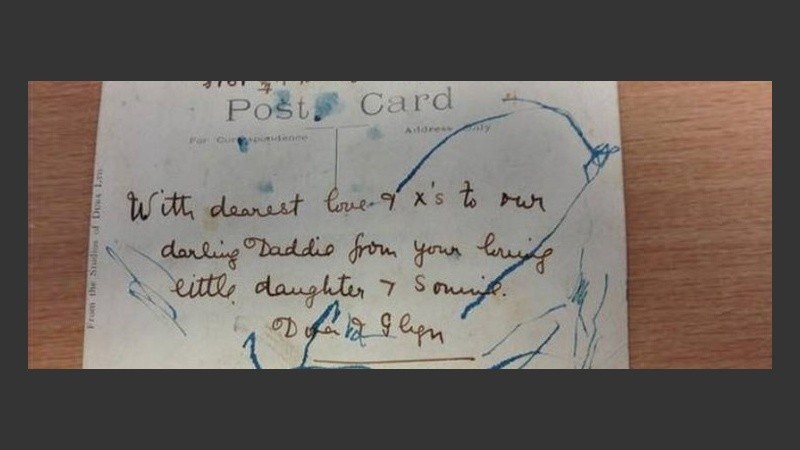 Post Card
For Correspondence Address Only
With dearest love & x's to our
darling Daddie from your loving
little daughter & Sonnie.
Dora & Glyn
From the Studios of Dura Ltd